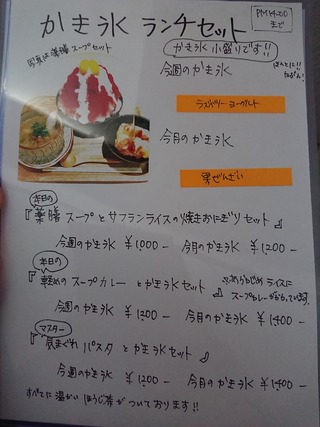 かき氷 ランチセット
PM14:00
まで
写真は薬膳スープセット
かき氷 小盛りです!!
今週のかき氷
ラズベリーヨーグルト
今月のかき氷
栗ぜんざい
本日の
『薬膳スープとサフランライスの焼きおにぎりセット』
今週のかき氷 ¥1000− 今月のかき氷 ¥1200−
本日の
『軽めのスープカレーとかき氷セット』
※あらかじめライスに
スープカレーがかかっています。
今週のかき氷 ¥1200− 今月のかき氷 ¥1400−
マスター
『気まぐれパスタとかき氷セット』
今週のかき氷 ¥1200− 今月のかき氷 ¥1400−
すべてに温かいほうじ茶がついております!!